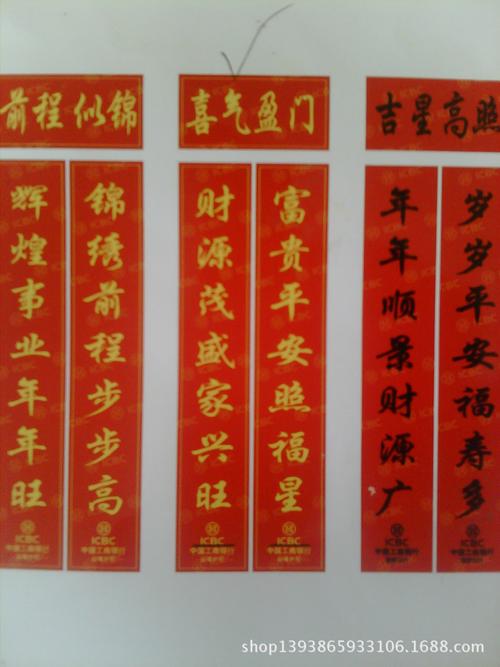 前程似锦
辉煌事业年年旺
锦绣前程步步高
ICBC
中国工商银行
ICBC
中国工商银行
喜气盈门
财源茂盛家兴旺
富贵平安照福星
ICBC
中国工商银行
ICBC
中国工商银行
吉星高照
年年顺景财源广
岁岁平安福寿多
ICBC
中国工商银行
ICBC
中国工商银行
shop1393865933106.1688.com